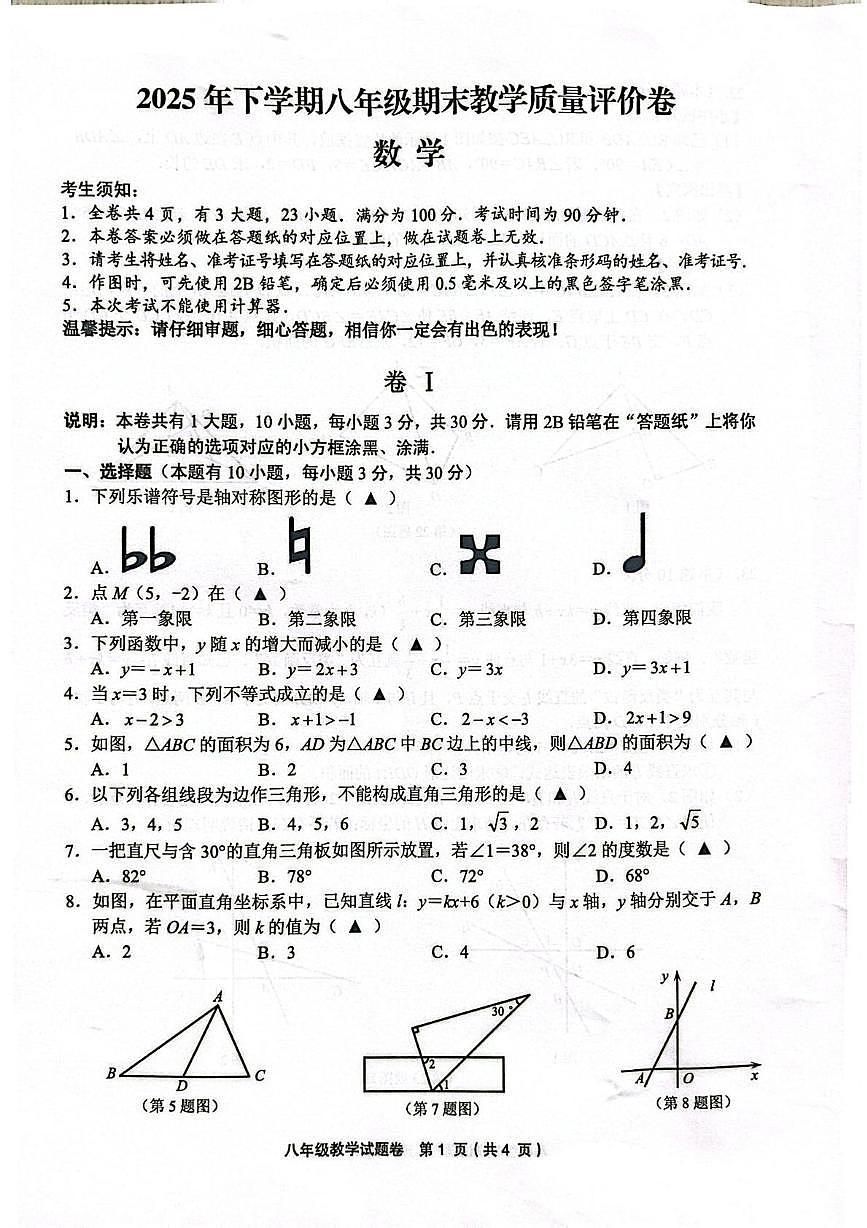 2025 年下学期八年级期末教学质量评价卷
数 学
考生须知:
1. 全卷共 4 页, 有 3 大题, 23 小题. 满分为 100 分. 考试时间为 90 分钟.
2. 本卷答案必须做在答题纸的对应位置上, 做在试题卷上无效.
3. 请考生将姓名、准考证号填写在答题纸的对应位置上, 并认真核准条形码的姓名、准考证号.
4. 作图时, 可先使用 2B 铅笔, 确定后必须使用 0.5 毫米及以上的黑色签字笔涂黑.
5. 本次考试不能使用计算器.
温馨提示: 请仔细审题, 细心答题, 相信你一定会有出色的表现!
卷 Ⅰ
说明: 本卷共有 1 大题, 10 小题, 每小题 3 分, 共 30 分. 请用 2B 铅笔在“答题纸”上将你
认为正确的选项对应的小方框涂黑、涂满.
一、选择题 (本题有 10 小题, 每小题 3 分, 共 30 分)
1. 下列乐谱符号是轴对称图形的是 ( ▲ )
A. B. C. D.
2. 点 M (5, -2) 在 ( ▲ )
A. 第一象限 B. 第二象限 C. 第三象限 D. 第四象限
3. 下列函数中, y 随 x 的增大而减小的是 ( ▲ )
A. y=-x+1 B. y=2x+3 C. y=3x D. y=3x+1
4. 当 x=3 时, 下列不等式成立的是 ( ▲ )
A. x-2>3 B. x+1>-1 C. 2-x<-3 D. 2x+1>9
5. 如图, △ABC 的面积为 6, AD 为△ABC 中 BC 边上的中线, 则△ABD 的面积为 ( ▲ )
A. 1 B. 2 C. 3 D. 4
6. 以下列各组线段为边作三角形, 不能构成直角三角形的是 ( ▲ )
A. 3, 4, 5 B. 4, 5, 6 C. 1, √3, 2 D. 1, 2, √5
7. 一把直尺与含 30°的直角三角板如图所示放置, 若∠1=38°, 则∠2 的度数是 ( ▲ )
A. 82° B. 78° C. 72° D. 68°
8. 如图, 在平面直角坐标系中, 已知直线 l: y=kx+6 (k>0) 与 x 轴, y 轴分别交于 A, B
两点, 若 OA=3, 则 k 的值为 ( ▲ )
A. 2 B. 3 C. 4 D. 6
A B D C
30° 2 1
y l B A O x
(第 5 题图) (第 7 题图) (第 8 题图)
八年级教学试题卷 第 1 页 (共 4 页)